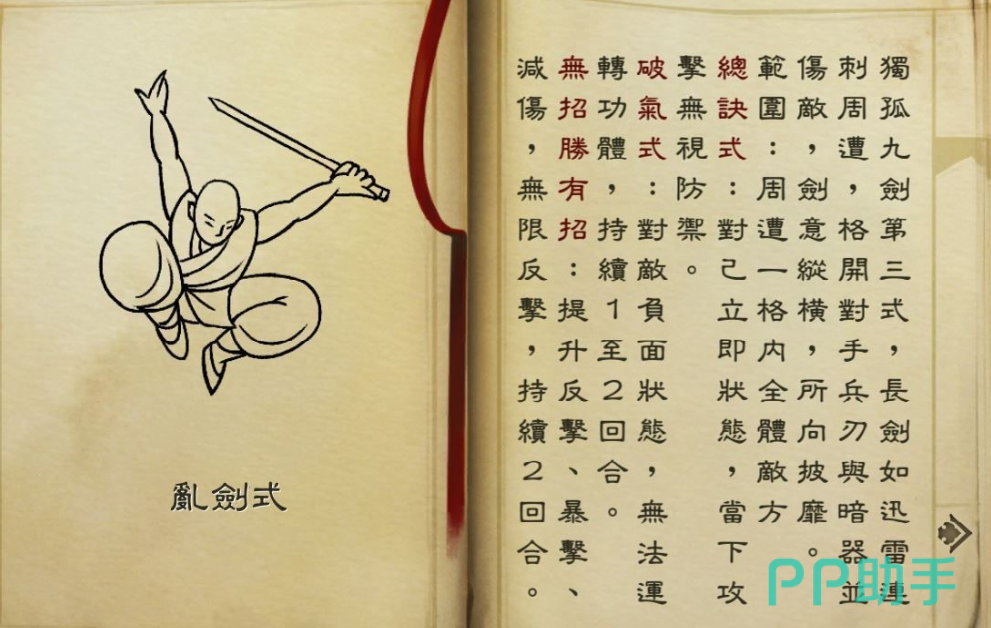 獨孤九劍第三式，長劍如迅雷連
刺周遭，格開對手兵刃與暗器並
傷敵，劍意縱橫，所向披靡。
範圍：周遭一格內全體敵方
總訣式：對己立即狀態，當下攻
擊無視防禦。
破氣式：對敵負面狀態，無法運
轉功體，持續1至2回合。
無招勝有招：提升反擊、暴擊、
減傷，無限反擊，持續2回合。
亂劍式
PP助手